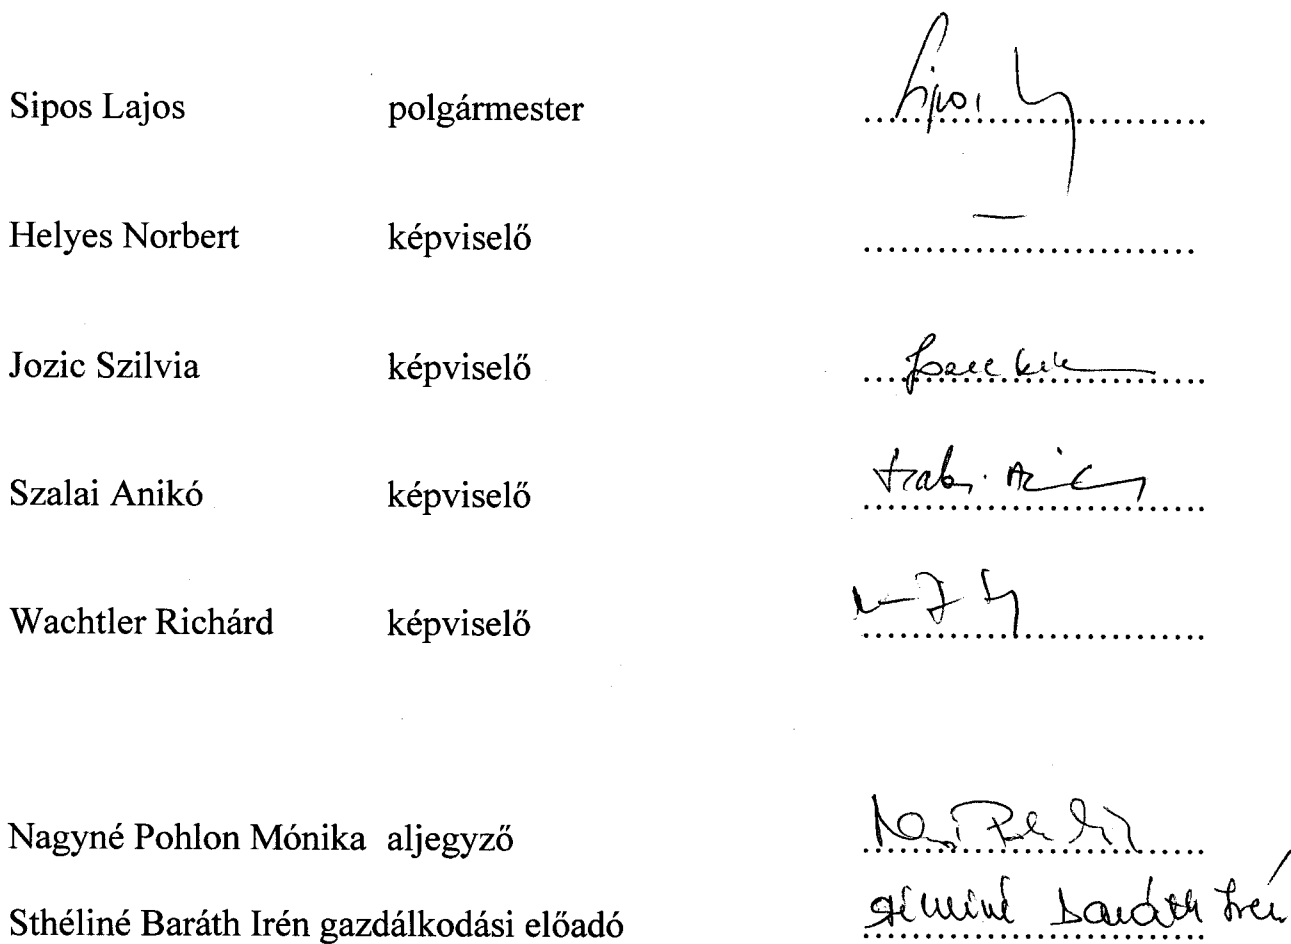 Sipos Lajos polgármester Sipos
Helyes Norbert képviselő —
Jozic Szilvia képviselő
Szalai Anikó képviselő
Wachtler Richárd képviselő
Nagyné Pohlon Mónika aljegyző
Sthéliné Baráth Irén gazdálkodási előadó Sthéliné Baráth Irén